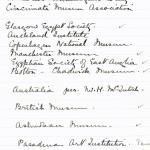 Cincinnati Museum Association
Glasgow Egypt Society
Auckland Institute
Copenhagen National Museum
Manchester Museum
Egyptian Society of East Anglia
Bolton Chadwick Museum
Australia per W.H.
British Museum
Ashmolean Museum
Pasadena Art Institution